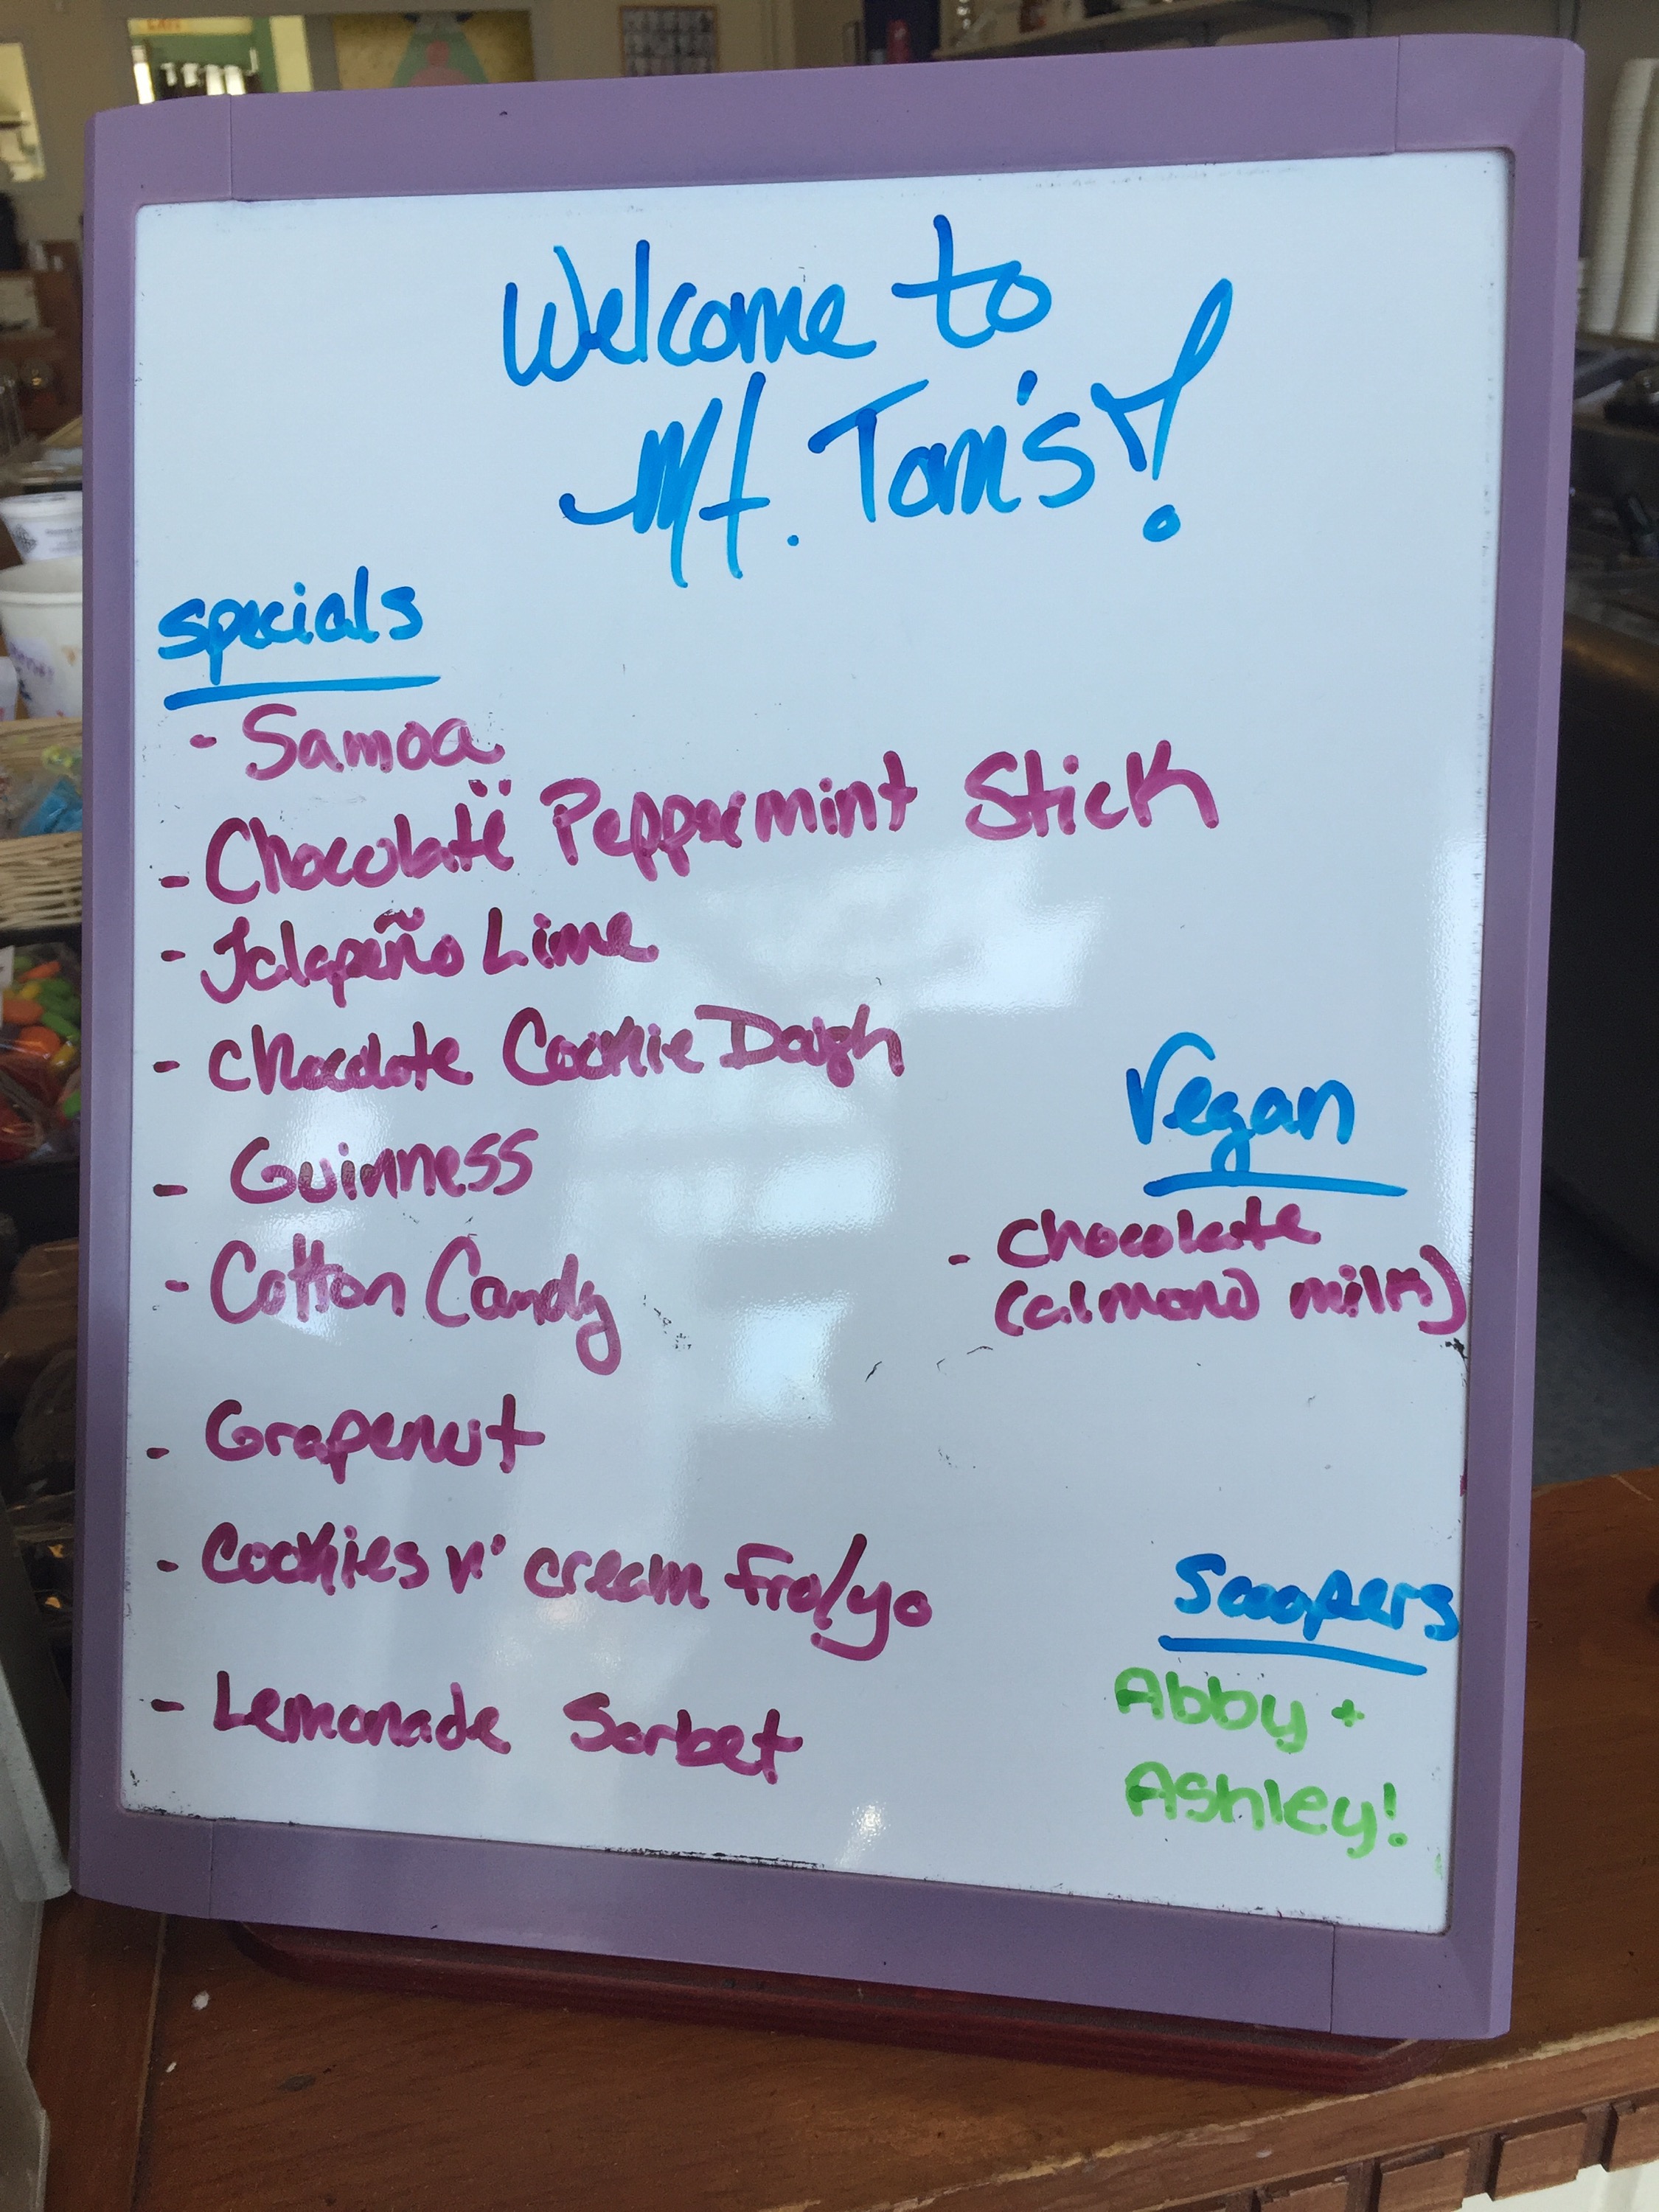 Welcome to
Mt. Tom's!
specials
- Samoa
- Chocolate Peppermint Stick
- Jalapeño Lime
- Chocolate Cookie Dough
- Guinness
- Cotton Candy
- Grapenut
- Cookies n' cream fro/yo
- Lemonade Sorbet
Vegan
- Chocolate
(almond milk)
Scoopers
Abby +
Ashley!